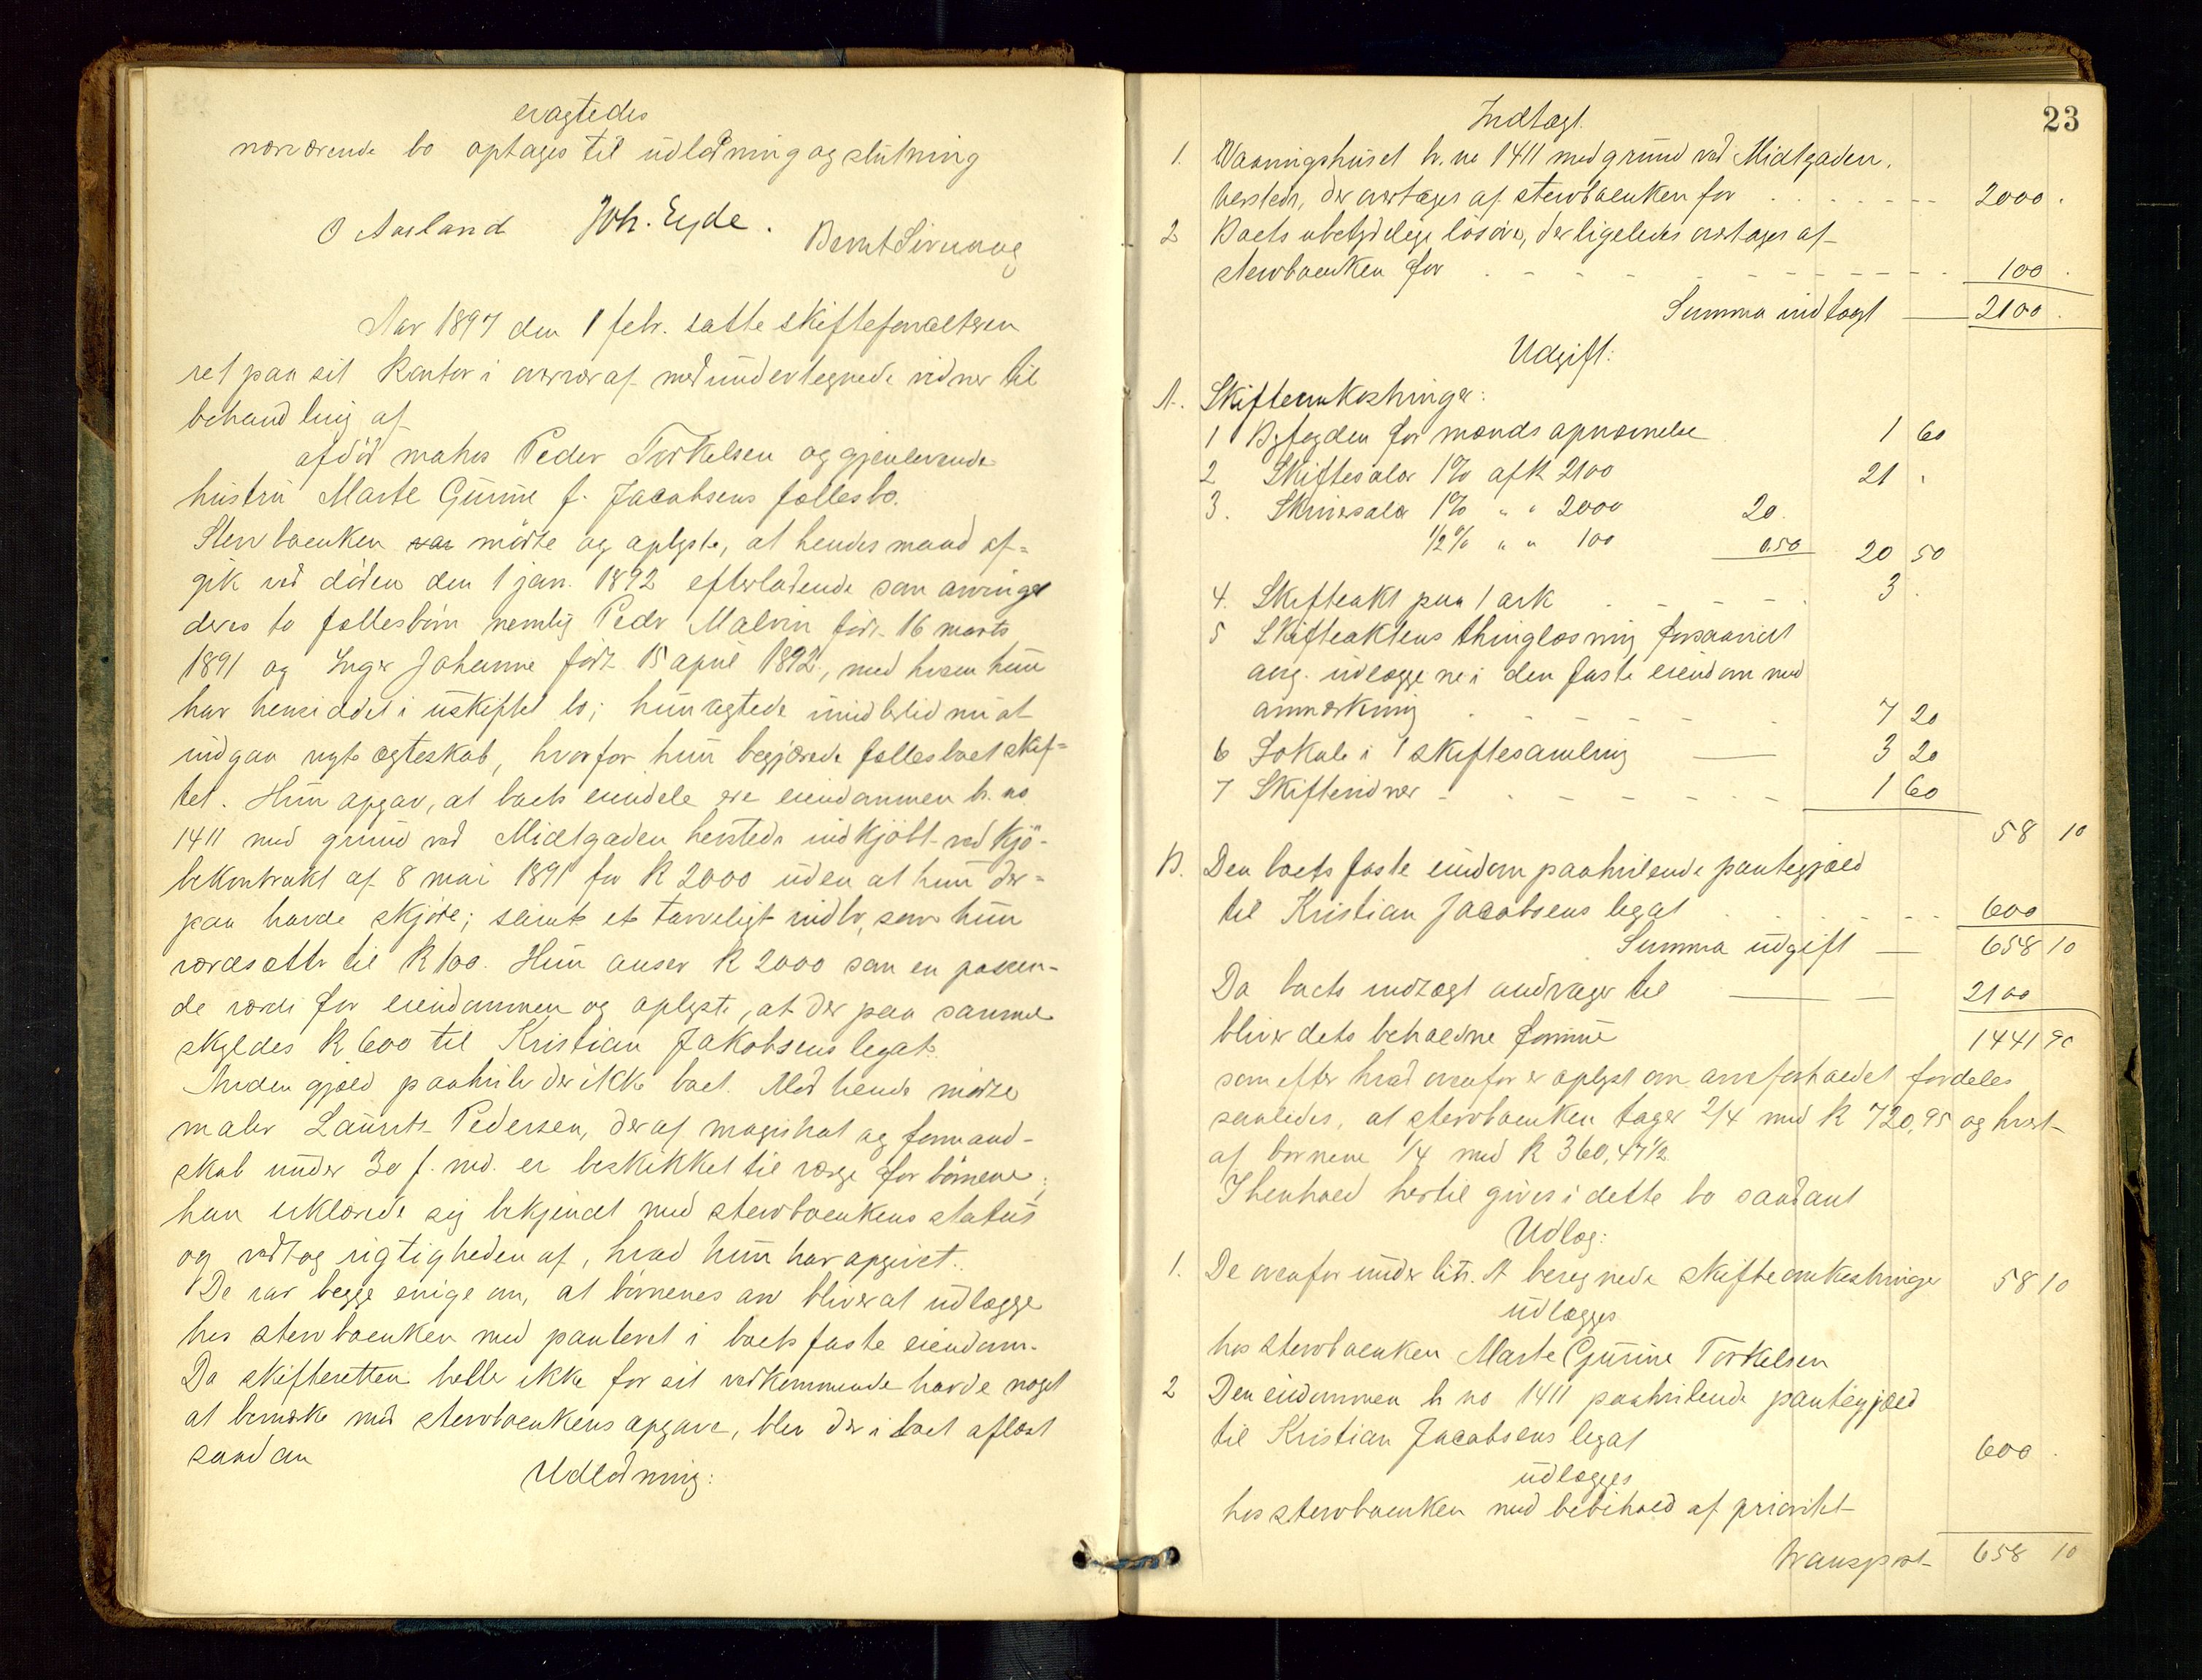 eragtedes
nærværende bo optages til udlodning og slutning
O Aarland Joh. Eyde. Bernt Sivunag
Aar 1897 den 1 febr. satte skifteforvalteren
ret paa sit kontor i overvær af medundertegnede vidner til
behandling af
afdød mahes Peder Torkelsen og gjenlevende
hustru Marte Gurine f. Jacobsens fællesbo.
Stervboenken var mødte og oplyste, at hendes mand af=
gik ved døden den 1 jan. 1892 efterladende som arvinger
deres to fællesbørn nemlig Peder Malvin født 16 marts
1891 og Inger Johanne født 15 april 1892, med hvem hun
har hensiddet i uskiftet bo; hun agtede imidlertid nu at
indgaa nyt ægteskab, hvorfor hun begjærede fællesboet skif=
tet. Hun opgav, at boets eiendele ere eiendommen h. no
1411 med grund ved Midtgaden hersteds indkjöbt ved kjö-
bekontrakt af 8 mai 1891 for K 2000 uden at hun der=
paa havde skjöte; samt et tarveligt indbo, som hun
værdsatte til K 100. Hun anser K 2000 som en passen-
de værdi for eiendommen og oplyste, at der paa samme
skyldes K 600 til Kristian Jakobsens legat.
Anden gjæld paahviler der ikke boet. Med hende mødte
maler Laurits Pedersen, der af magistrat og formand-
skab under 30 f. md. er beskikket til værge for börnene;
han erklærede sig bekjendt med stervboenkens status
og vedtog rigtigheden af, hvad hun har opgivet.
De var begge enige om, at börnenes arv bliver at udlægge
hos stervboenken med panteret i boets faste eiendom.
Da skifteretten heller ikke for sit vedkommende havde noget
at bemærke mod stervboenkens opgave, blev der i boet aflæst
saadan
Udlodning:
23
Indtægt.
1. Vaaningshuset h. no 1411 med grund ved Midtgaden.
hersteds, der overtages af stervboenken for 2000.
2 Boets ubetydelige lösöre, der ligeledes overtages af
stervboenken for 100.
Summa indtægt 2100.
Udgift:
A. Skifteomkostninger:
1 Byfogden for mænds opnævnelse 1 60
2 Skiftesalær 1% af K 2100 21 .
3. Skriversalær 1% " " 2000 20.
1/2% " " 100 0.50 20 50
4. Skifteakt paa 1 ark 3 .
5 Skifteaktens thinglæsning forsaavidt
ang. udlæggene i den faste eiendom med
anmærkning 7 20
6 Lokale i 1 skiftesamling 3 20
7 Skiftevidner 1 60
58 10
B. Den boets faste eiendom paahvilende pantegjæld
til Kristian Jacobsens legat 600
Summa udgift 658 10
Da boets indtægt andrager til 2100
bliver dets beholdne formue 1441 90
som efter hvad ovenfor er oplyst om arveforholdet fordeles
saaledes, at stervboenken tager 2/4 med K 720,95 og hvert
af børnene 1/4 med K 360,47 1/2
I henhold hertil gives i dette bo saadant
Udlæg:
1. De ovenfor under litr. A beregnede skifteomkostninger 58 10
udlægges
hos stervboenken Marte Gurine Torkelsen
2 Den eiendommen h no 1411 paahvilende pantegjæld
til Kristian Jacobsens legat 600 .
udlægges
hos stervboenken med bibehold af prioritet
Transport 658 10